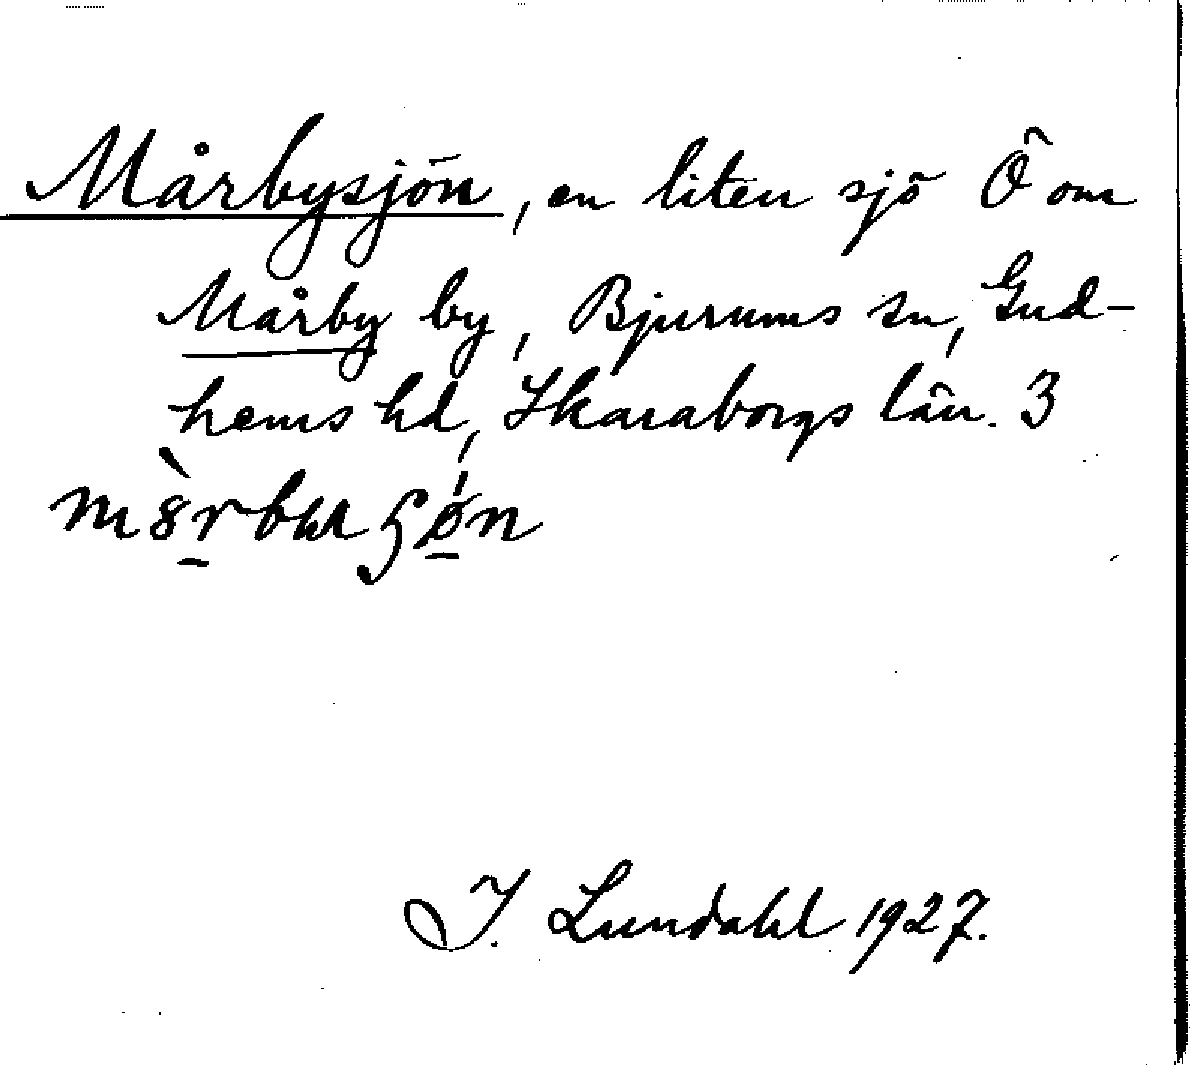 Mårbysjön, en liten sjö Ö om
Mårby by, Bjurums sn, Gud-
hems hd, Skaraborgs län. 3
I. Lundahl 1927.